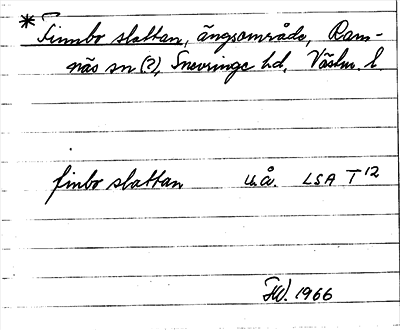 * Finnbo slattan, ängsområde, Ram-
näs sn (?), Snevringe hd, Västm. l
finbo slattan u.å. LSA T 12
HW. 1966